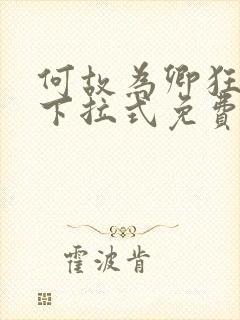 何故為卿狂
下拉式免費
霍波肯